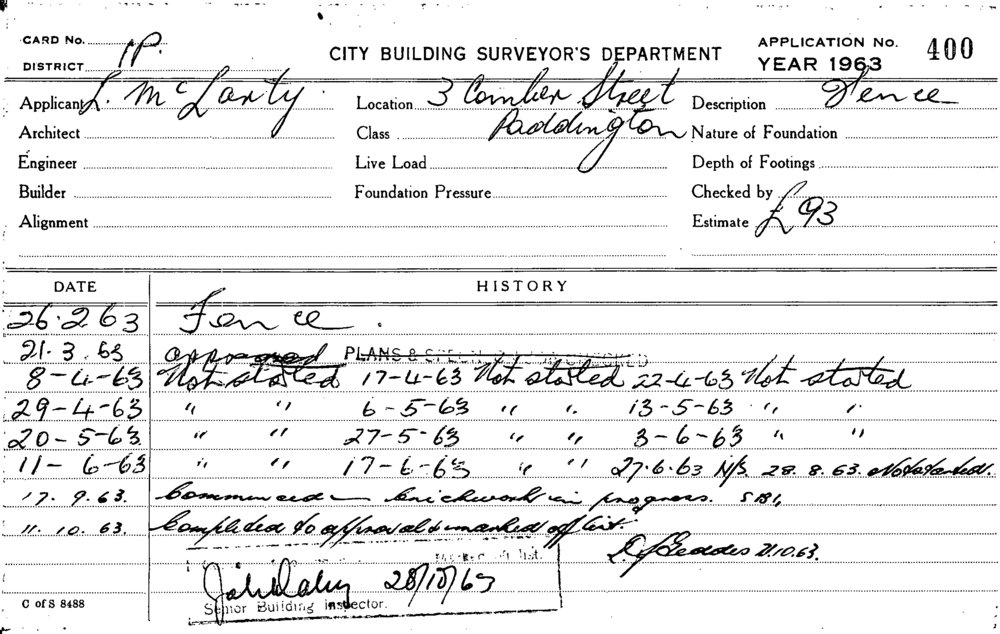 CARD No. 1P.
DISTRICT
CITY BUILDING SURVEYOR'S DEPARTMENT
APPLICATION No. 400
YEAR 1963
Applicant L. McLarty. Location 3 Comber Street Description Fence
Architect Class Paddington Nature of Foundation
Engineer Live Load Depth of Footings
Builder Foundation Pressure Checked by
Alignment Estimate £93
DATE HISTORY
26.2.63 Fence.
21.3.63 approved PLANS &
8-4-63 Not started 17-4-63 Not started 22-4-63 Not started
29-4-63 " " 6-5-63 " " 13-5-63 " "
20-5-63 " " 27-5-63 " " 3-6-63 " "
11-6-63 " " 17-6-63 " " 27.6.63 N/S. 28.8.63. Not started.
17.9.63. Commenced brickwork in progress.
11.10.63. Completed to approval & marked off list.
D. J. Geddes 21.10.63.
off list.
John Daley 28/10/63
Senior Building Inspector.
C of S 8488